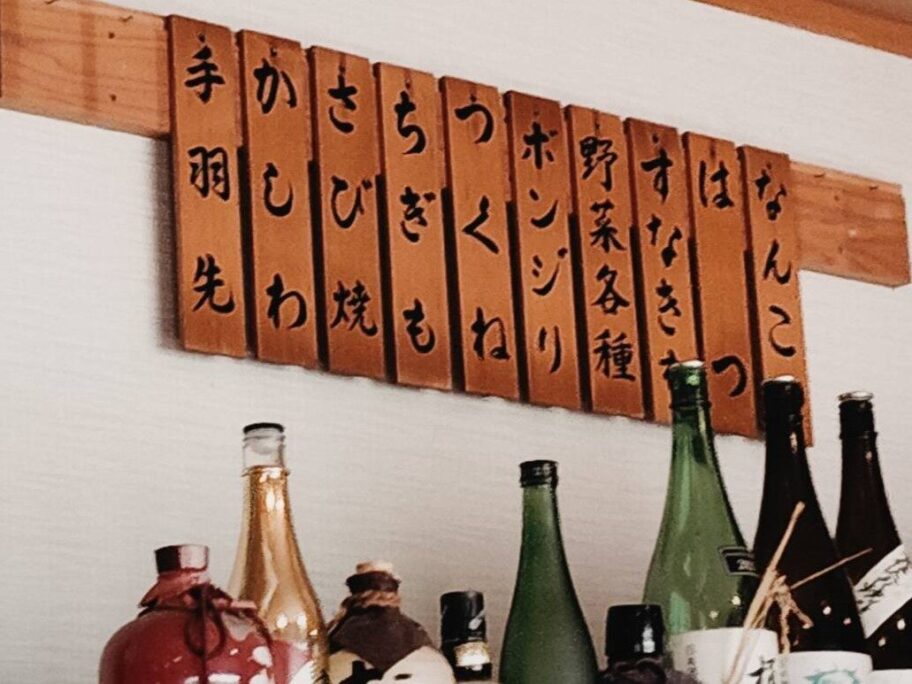 なんこ
はつ
すなき
野菜各種
ボンジリ
つくね
ちぎも
さび焼
かしわ
手羽先